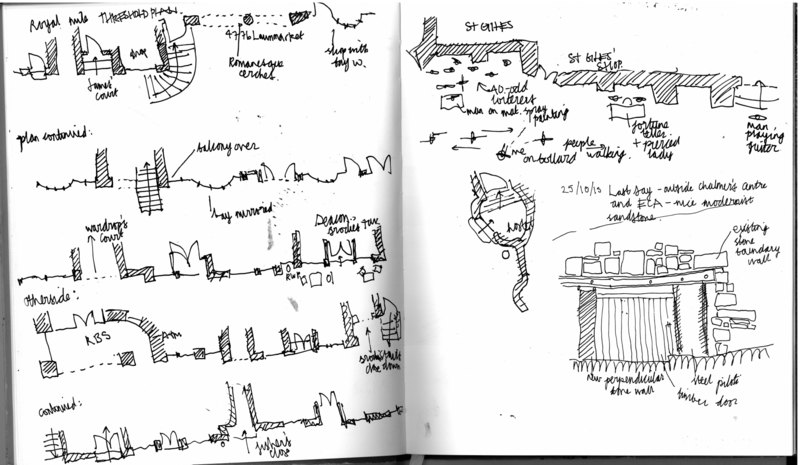 Royal mile THRESHOLD PLAN
shop
James' court
477b Lawnmarket
Romanesque arches.
shop with
bay w.
plan continued:
balcony over
bay mirrored
wardrop's
court
Deacon
Brodies
RWP
otherside:
RBS
ATM
close down
continued:
fisher's
close
ST GILES
ST GILES'
SHOP.
40-odd
loiterers
man on mat. spray
painting
fortune
teller
+ pierced
lady
man
playing
guitar
me
on bollard
people
walking.
25/10/15 Last day - outside chalmer's centre
and ECA - nice modernist
sandstone.
existing
stone
boundary
wall
New perpendicular
stone wall
timber door
steel piloti